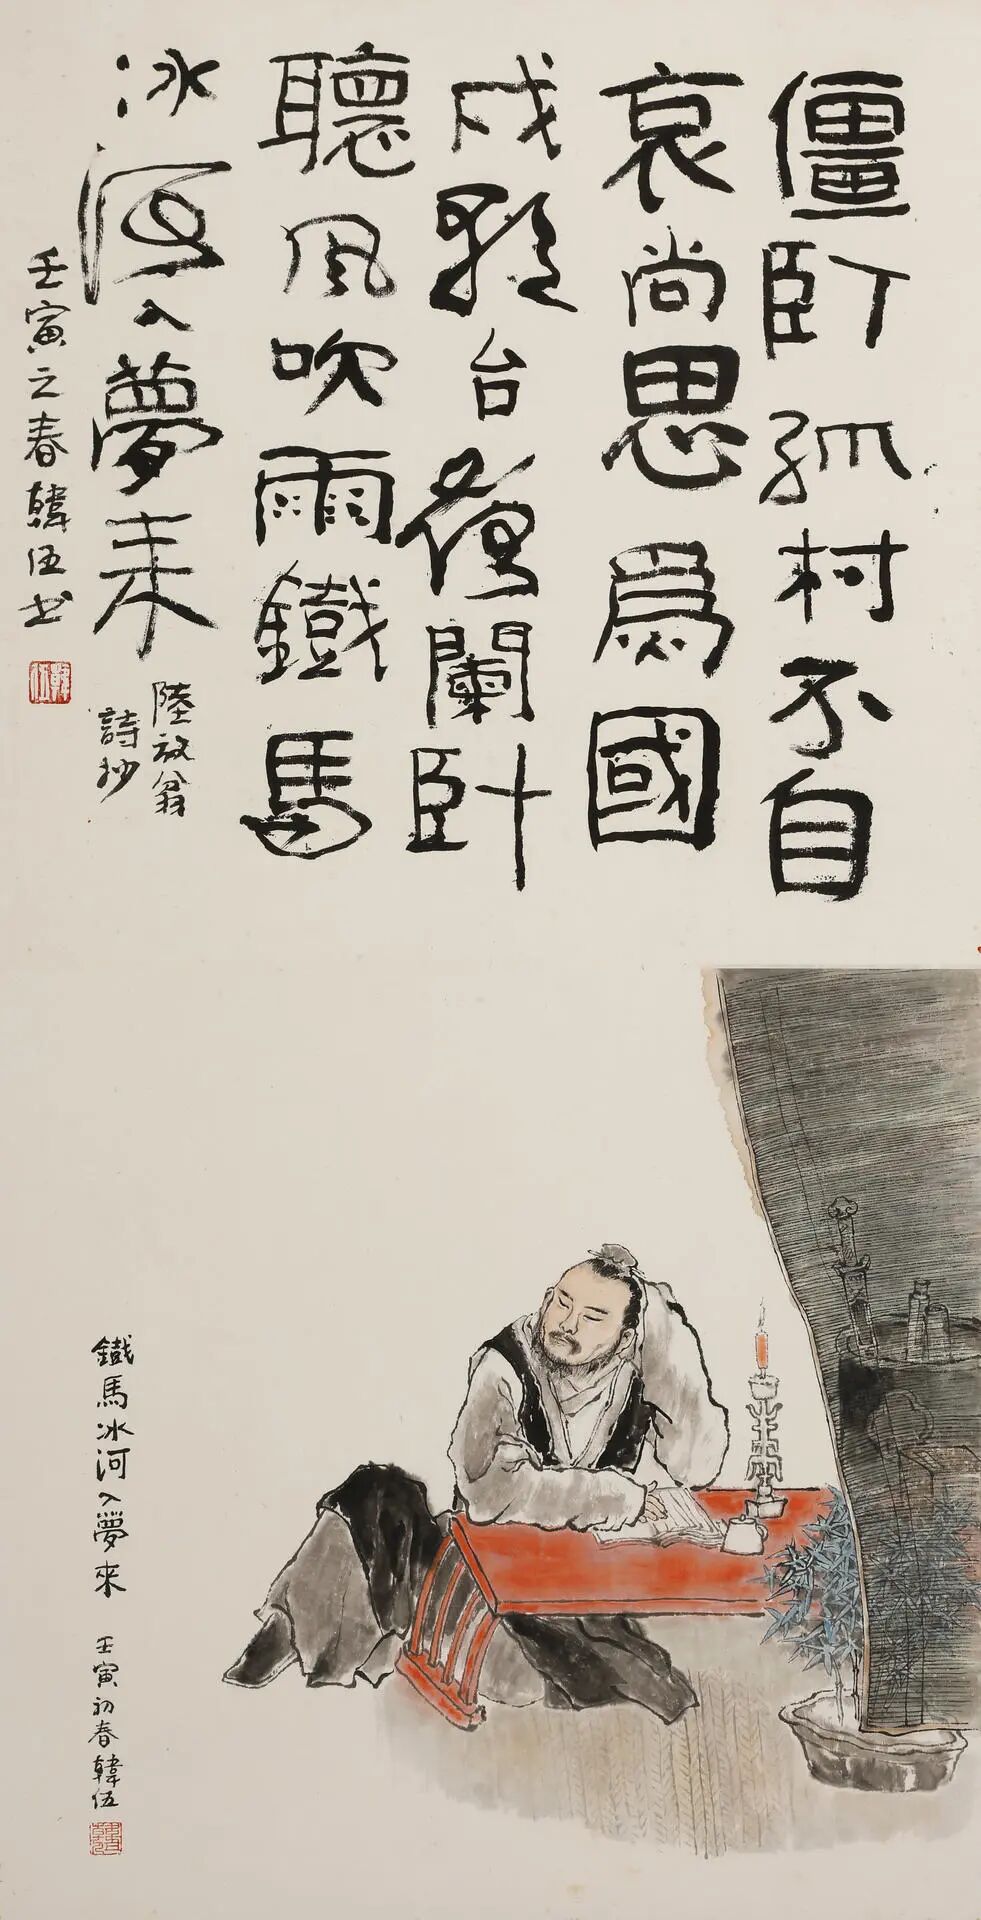 僵臥孤村不自
哀尚思爲國
戍輪台夜闌臥
聽風吹雨鐵馬
冰河入夢来
陸放翁
詩抄
壬寅之春韓伍书
韓伍
鐵馬冰河入夢來
壬寅初春韓伍